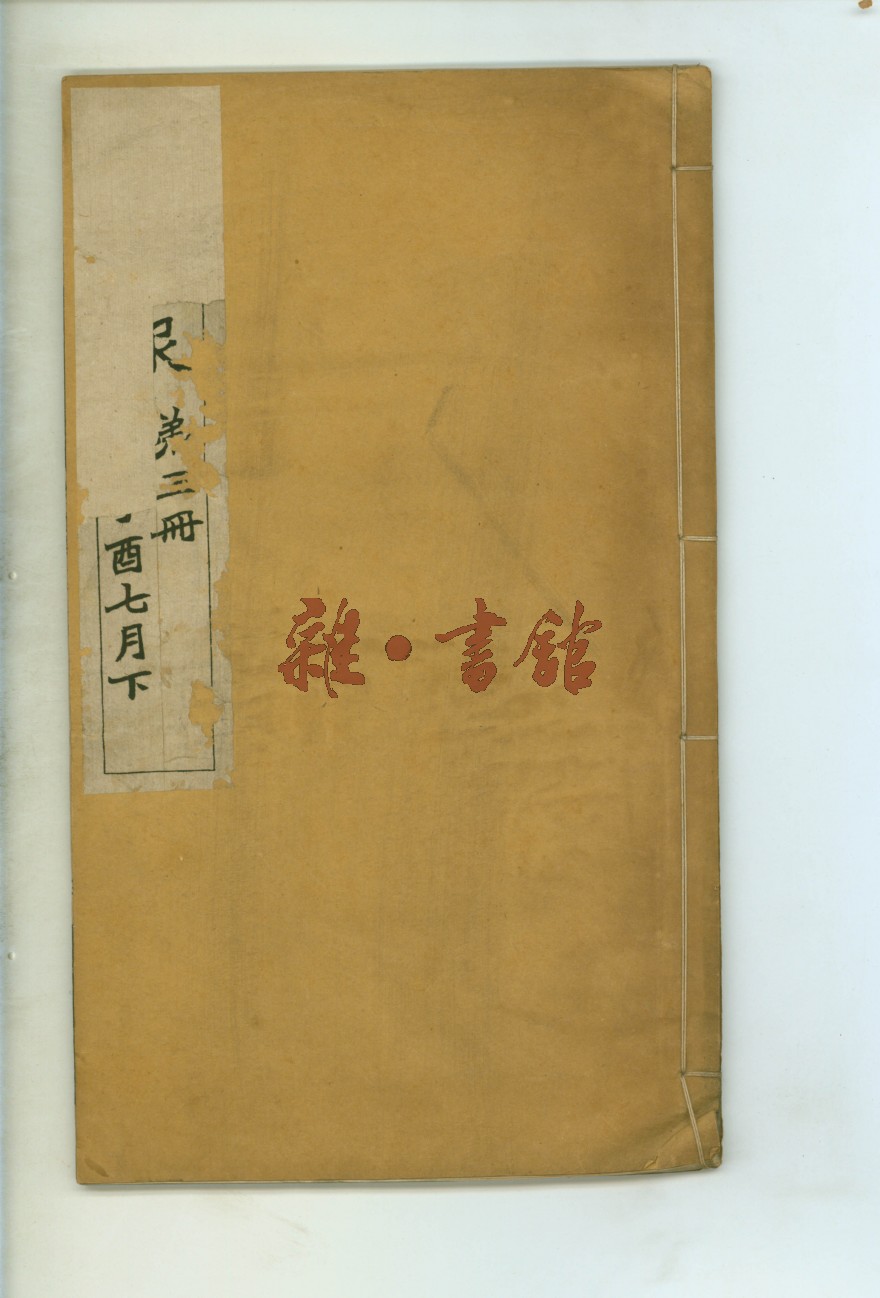 弟三冊
酉七月下
雜·書館